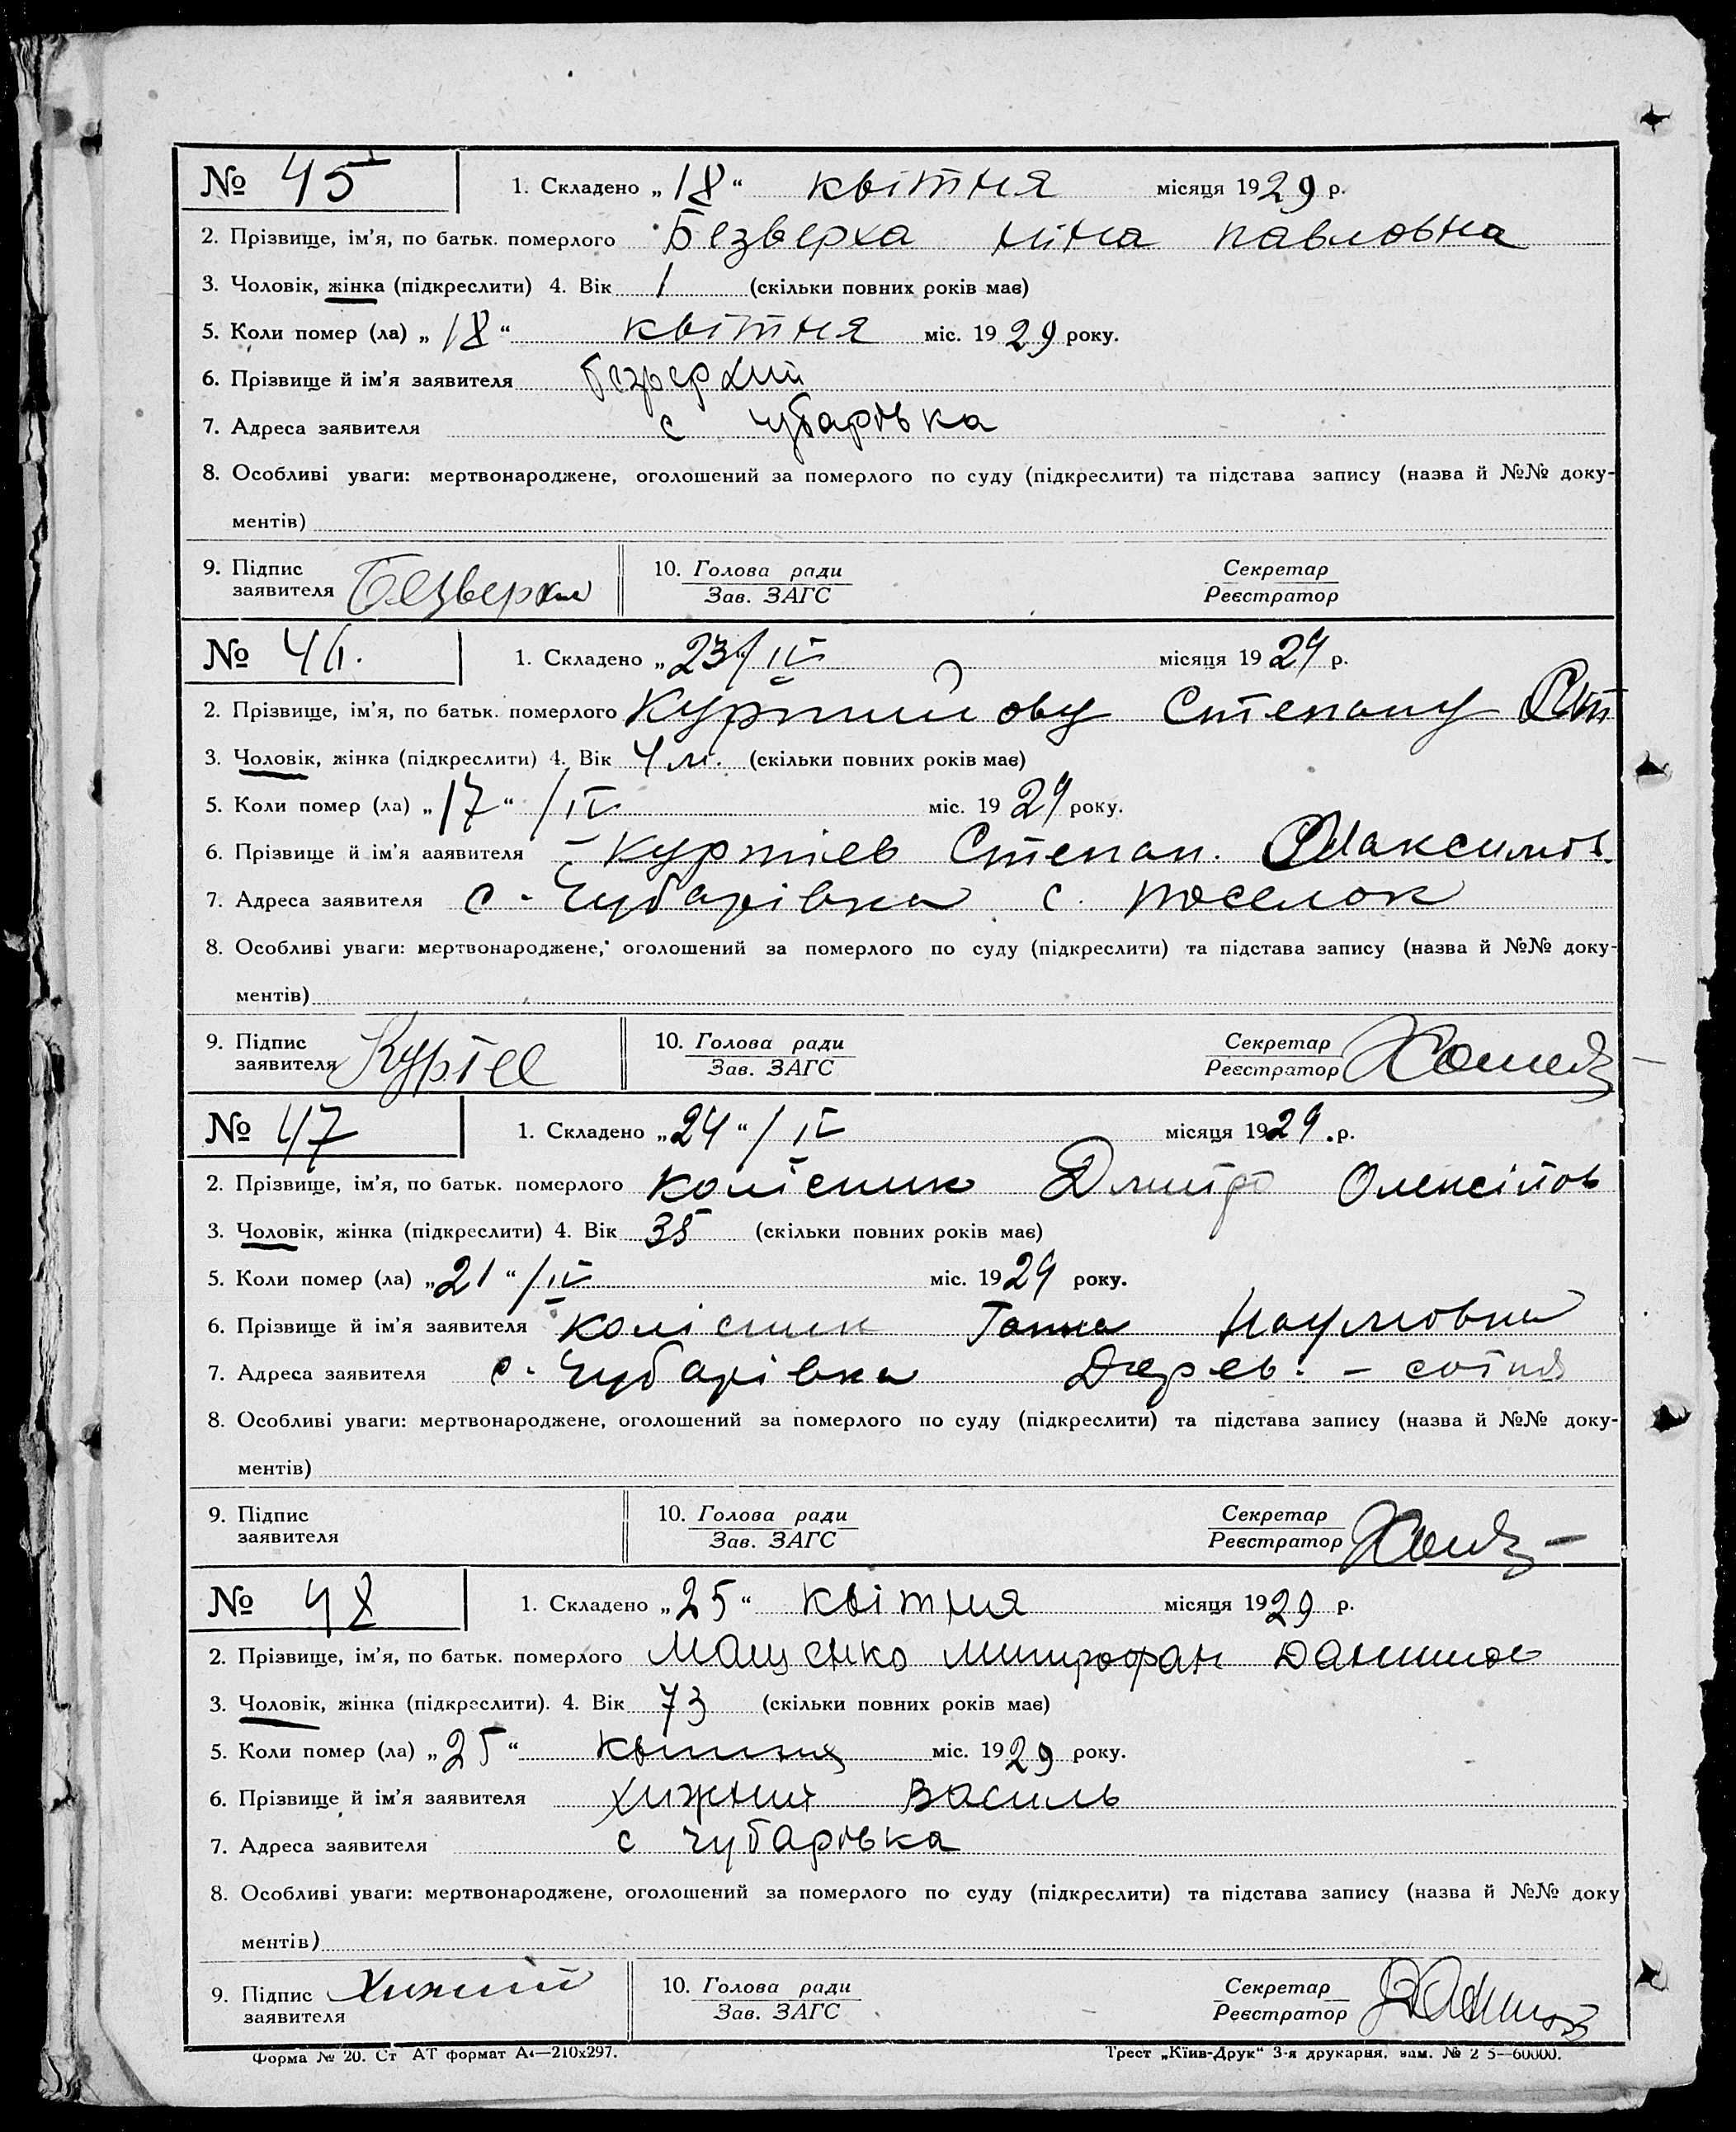 № 45 1. Складено „18“ квітня місяця 1929 р.
2. Прізвище, ім'я, по батьк. померлого Безверха Ніна Павловна
3. Чоловік, жінка (підкреслити) 4. Вік 1 (скільки повних років має)
5. Коли помер (ла) „18“ квітня міс. 1929 року.
6. Прізвище й ім'я заявителя Безверхий
7. Адреса заявителя с Чубарівка
8. Особливі уваги: мертвонароджене, оголошений за померлого по суду (підкреслити) та підстава запису (назва й №№ доку-
ментів)
9. Підпис заявителя Безверхий 10. Голова ради Зав. ЗАГС Секретар Реєстратор
№ 46. 1. Складено „23“/IV місяця 1929 р.
2. Прізвище, ім'я, по батьк. померлого Степану
3. Чоловік, жінка (підкреслити) 4. Вік 4 м. (скільки повних років має)
5. Коли помер (ла) „17“ /IV міс. 1929 року.
6. Прізвище й ім'я ааявителя Куртієв Степан. Максимов.
7. Адреса заявителя с. Чубарівка с. поселок
8. Особливі уваги: мертвонароджене, оголошений за померлого по суду (підкреслити) та підстава запису (назва й №№ доку-
ментів)
9. Підпис заявителя 10. Голова ради Зав. ЗАГС Секретар Реєстратор
№ 47 1. Складено „24“/IV місяця 1929. р.
2. Прізвище, ім'я, по батьк. померлого Колісник Дмитро Олексійов
3. Чоловік, жінка (підкреслити) 4. Вік 35 (скільки повних років має)
5. Коли помер (ла) „21“/IV міс. 1929 року.
6. Прізвище й ім'я заявителя Колісник Ганна Наумовна
7. Адреса заявителя с. Чубарівка Дерев. - сотня
8. Особливі уваги: мертвонароджене, оголошений за померлого по суду (підкреслити) та підстава запису (назва й №№ доку-
ментів)
9. Підпис заявителя 10. Голова ради Зав. ЗАГС Секретар Реєстратор
№ 48 1. Складено „25“ квітня місяця 1929 р.
2. Прізвище, ім'я, по батьк. померлого Мащенко Митрофан Данилов
3. Чоловік, жінка (підкреслити). 4. Вік 73 (скільки повних років має)
5. Коли помер (ла) „25“ квітня міс. 1929 року.
6. Прізвище й ім'я заявителя Хижний Василь
7. Адреса заявителя с Чубарівка
8. Особливі уваги: мертвонароджене, оголошений за померлого по суду (підкреслити) та підстава запису (назва й №№ доку
ментів)
9. Підпис заявителя Хижний 10. Голова ради Зав. ЗАГС Секретар Реєстратор
Форма № 20. Ст АТ формат А4—210х297. Трест „Київ-Друк“ 3-я друкарня, зам. № 2 5—60000.